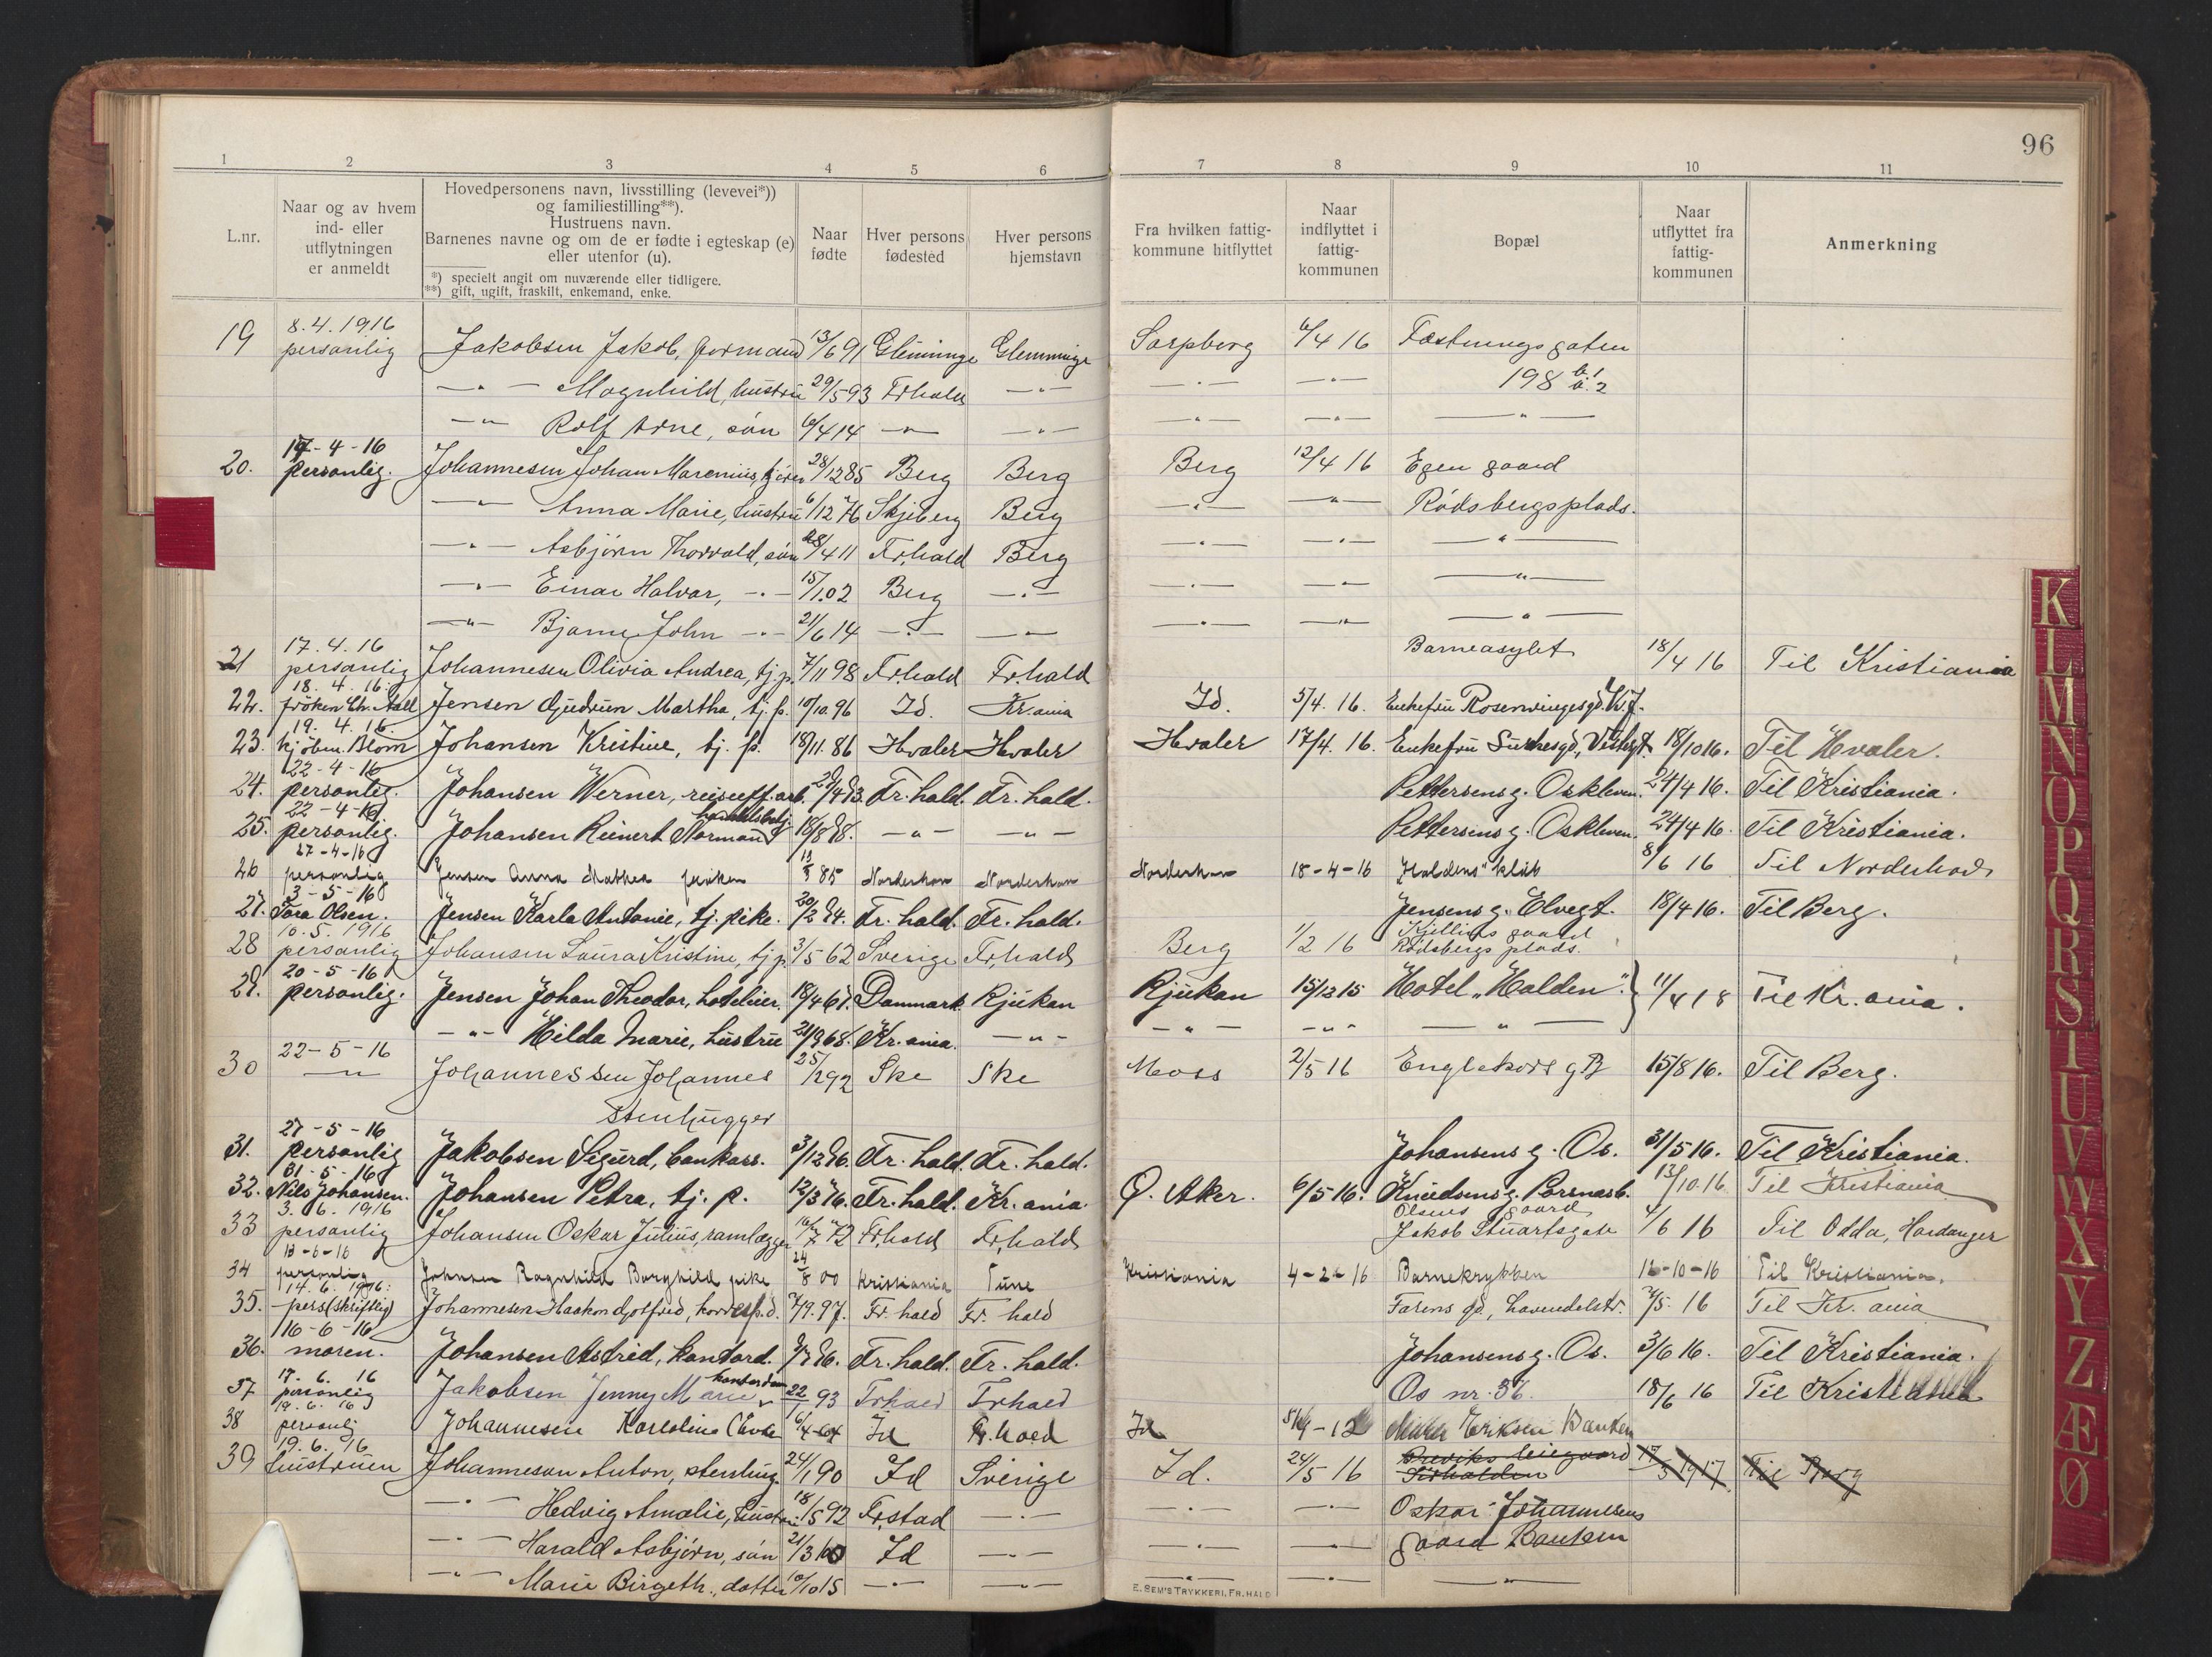 96
1 2 3 4 5 6 7 8 9 10 11
L.nr.
Naar og av hvem
ind- eller
utflytningen
er anmeldt
Hovedpersonens navn, livsstilling (levevei*))
og familiestilling**).
Hustruens navn.
Barnenes navne og om de er fødte i egteskap (e)
eller utenfor (u).
*) specielt angit om nuværende eller tidligere.
**) gift, ugift, fraskilt, enkemand, enke.
Naar
fødte
Hver persons
fødested
Hver persons
hjemstavn
Fra hvilken fattig-
kommune hitflyttet
Naar
indflyttet i
fattig-
kommunen
Bopæl
Naar
utflyttet fra
fattig-
kommunen
Anmerkning
8.4.1916
19 personlig Jakobsen Jakob, formand 13/6 91 Glemminge Glemminge Sarpborg 6/4 16 Fæstningsgaten
—"— Magnhild, hustru 29/5 93 Frhald —"— —"— —"— 198
—"— Rolf Arne, søn 6/4 14 —"— —"— —"— —"— —"—
-4-16
20. personlig. Johannesen Johan Marenius, 28/12 85 Berg Berg Berg 12/4 16 Egen gaard
—"— Anna Marie, hustru 6/12 76 Skjeberg Berg —"— —"— Rødsbergsplads.
—"— Asbjørn Thorvald, søn 28/4 11 Fr.hald Berg —"— —"— —"—
—"— Einar Halvar, —"— 15/1 02 Berg —"— —"— —"— —"—
—"— Bjarne John —"— 21/6 14 —"— —"— —"— —"— —"—
17.4.16
21 personlig Johannesen Olivia Andrea, tj.p. 7/11 98 Fr.hald Fr.hald Barneasylet 18/4 16 Til Kristiania
18. 4. 16.
22. frøken Ch. Aall Jensen Gudrun Martha, tj. p. 10/10. 96 Id. Kr.ania Id. 5/4. 16. Enkefru Rosenvingesgd.
19. 4. 16.
23. kjøbm. Blom Johansen Kristine, tj. p. 18/11. 86 Hvaler Hvaler Hvaler 17/4. 16. Enkefru 18/10 16. Til Hvaler.
22-4-16
24. personlig. Johansen Werner, 29/4 93. Fr.hald. Fr.hald. Pettersens g. Oskleven. 24/4 16. Til Kristiania.
22-4-16
25. personlig. Johansen Reinert Normand 18/8 98. —"— —"— Pettersens g. Oskleven. 24/4 16. Til Kristiania.
27-4-16
26 personlig Jensen Anna Mathea frøken 13/3 85 Norderhov Norderhov Norderhov 18-4-16 "Haldens" klub 8/6 16 Til Norderhov
3-5-16
27. Tora Olsen. Jensen Karla Antonie, tj. pike. 20/2 94. Fr.hald. Fr.hald. Jensens g. Elvegt. 18/4 16. Til Berg.
10.5.1916
28 personlig Johansen Laura Kristine, tj p. 3/5 62 Sverige Fr.hald Berg 1/2 16 Kjellins gaard
Rødsbergs plads.
20-5-16
29. personlig. Jensen Johan Theodor, hotelier. 18/4 67. Danmark Rjukan Rjukan 15/12 15 Hotel „Halden". 11/4 18 Til Kr.ania.
—"— Hilda Marie, hustru 21/9 68. Kr.ania. —"— —"— —"— —"—
22-5-16
30 —"— Johannessen Johannes 25/12 92 Ske Ske Moss 2/5 16 15/8 16. Til Berg.
Stenhugger
27-5-16
31. personlig Jakobsen Sigurd, bankass. 3/12 96. Fr.hald. Fr.hald. Johansens g. Os. 31/5 16. Til Kristiania.
31-5-16
32. Nils Johansen. Johansen Petra, tj. p. 12/3 76. Fr.hald. Kr.ania. Ø. Aker. 6/5 16. Knudsens g. 13/10 16 Til Kristiania
3. 6. 1916
33 personlig Johansen Oskar Julius, 16/7 72 Fr.hald Fr.hald Olsens gaard
Jakob Stuartsgate 4/6 16 Til Odda, Hardanger
13-6-16
34 personlig Johnsen Ragnhild Borghild pike 24/8 00 Kristiania Tune Kristiania 4-2-16 Barnekrybben 16-10-16 Til Kristiania.
14. 6. 1916:
35. pers(skriftlig) Johannesen Haakon Gotfred, korresp.d. 7/9. 97. Fr.hald Fr.hald Farens gd., Lavendelstr. 7/5. 16 Til Kr.ania
16-6-16
36. moren. Johansen Astrid, kontord. Fr.hald. Fr.hald. Johansens g. Os. 3/6 16. Til Kristiania.
17. 6. 16
37 personlig Jakobsen Jenny Marie kontordame 22/1 93 Frhald Frhald Os nr. 36. 18/6 16 Til Kristiania
19. 6. 16
38 personlig Johannesen Karoline 6/4-64 Id Fr.hald Id Eriksen Banken
19. 6. 16
39 hustruen Johannesen Anton, stenhug. 24/1 90 Id Sverige Id. 24/5 16 Breviks leiegaard
Firhalden 17/3 1917 Til Berg
—"— Hedvig Amalie, hustru 18/5 92 Fr.stad —"— —"— —"— Oskar Johannesens
—"— Harald Asbjørn, søn 21/3 10 Id —"— —"— —"— gaard Banken
—"— Marie Birgeth., datter 10/10 15 —"— —"— —"— —"— —"—
E. SEM'S TRYKKERI, FR.HALD
K
L
M
N
O
P
Q
R
S
T
U
V
W
X
Y
Z
Æ
Ø